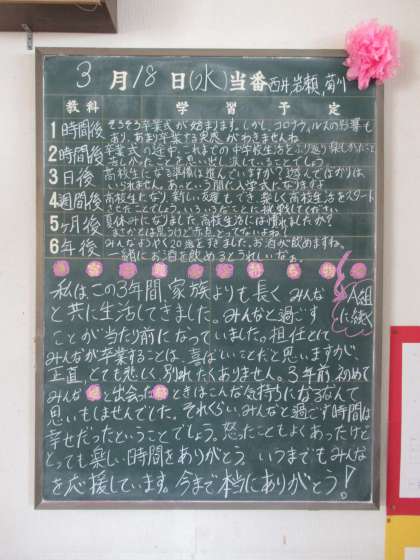 3月18日(水)当番 西井 岩瀬 菊川
教科 学習予定
1時間後 そろそろ卒業式が始まります。しかし、コロナウィルスの影響も
あり、あまり卒業する実感がわきませんね。
2時間後 卒業式の途中。これまでの中学校生活をふり返り楽しかったこと
苦しかったことを思い出し涙していることでしょう
3日後 高校生になる準備は進んでいますか?遊んでばかりは
いられません。あっという間に入学式になりますよ
4週間後 高校生になり、新しい友達もでき楽しく高校生活をスタート
させたことでしょう。いろいろなことに挑戦してください
5ヶ月後 夏休みになりました。高校生活には慣れましたか?
まさかとは思うけど赤点とってないよね!
6年後 みんなようやく20歳をすぎました。お酒が飲めますね。
一緒にお酒を飲めるとうれしいなぁ。
私はこの3年間、家族よりも長くみんな
と共に生活してきました。みんなと過ごす
ことが当たり前になっていました。担任として
みんなが卒業することは、喜ばしいことだと思いますが、
正直、とても悲しく別れたくありません。3年前初めて
みんなと出会ったときはこんな気持ちになるなんて
思いもしませんでした。それくらい、みんなと過ごす時間は
幸せだったということでしょう。怒ったこともよくあったけど
とっても楽しい時間をありがとう。いつまでもみんな
を応援しています。今まで本当にありがとう!
A組
に続く